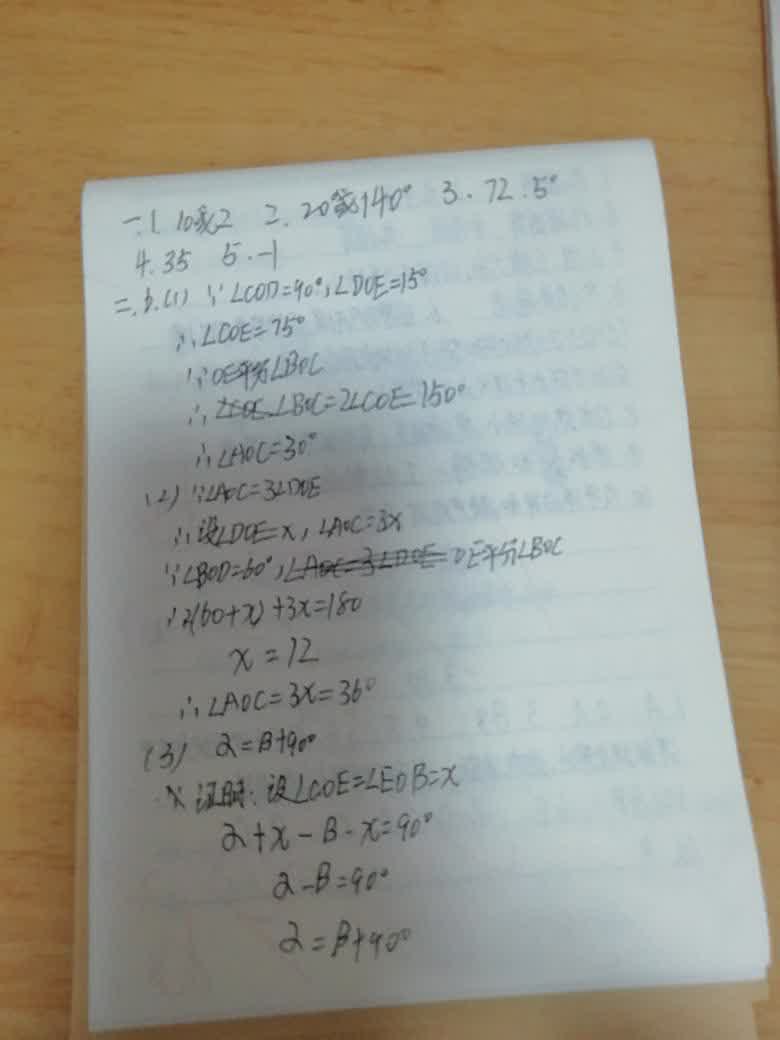 一.1. 10或2 2. 20°或140° 3. 72.5°
4.35 5.-1
二.6.(1) ∵∠COD=90°,∠DOE=15°
∴∠COE=75°
∵OE平分∠BOC
∴∠BOC=2∠COE=150°
∴∠AOC=30°
(2) ∵∠AOC=3∠DOE
∴设∠DOE=x,∠AOC=3x
∵∠BOD=60°,∠AOC=3∠DOE OE平分∠BOC
∴2(60+x)+3x=180
x=12
∴∠AOC=3x=36°
(3) α=β+90°
证明:设∠COE=∠EOB=x
α+x-β-x=90°
α-β=90°
α=β+90°